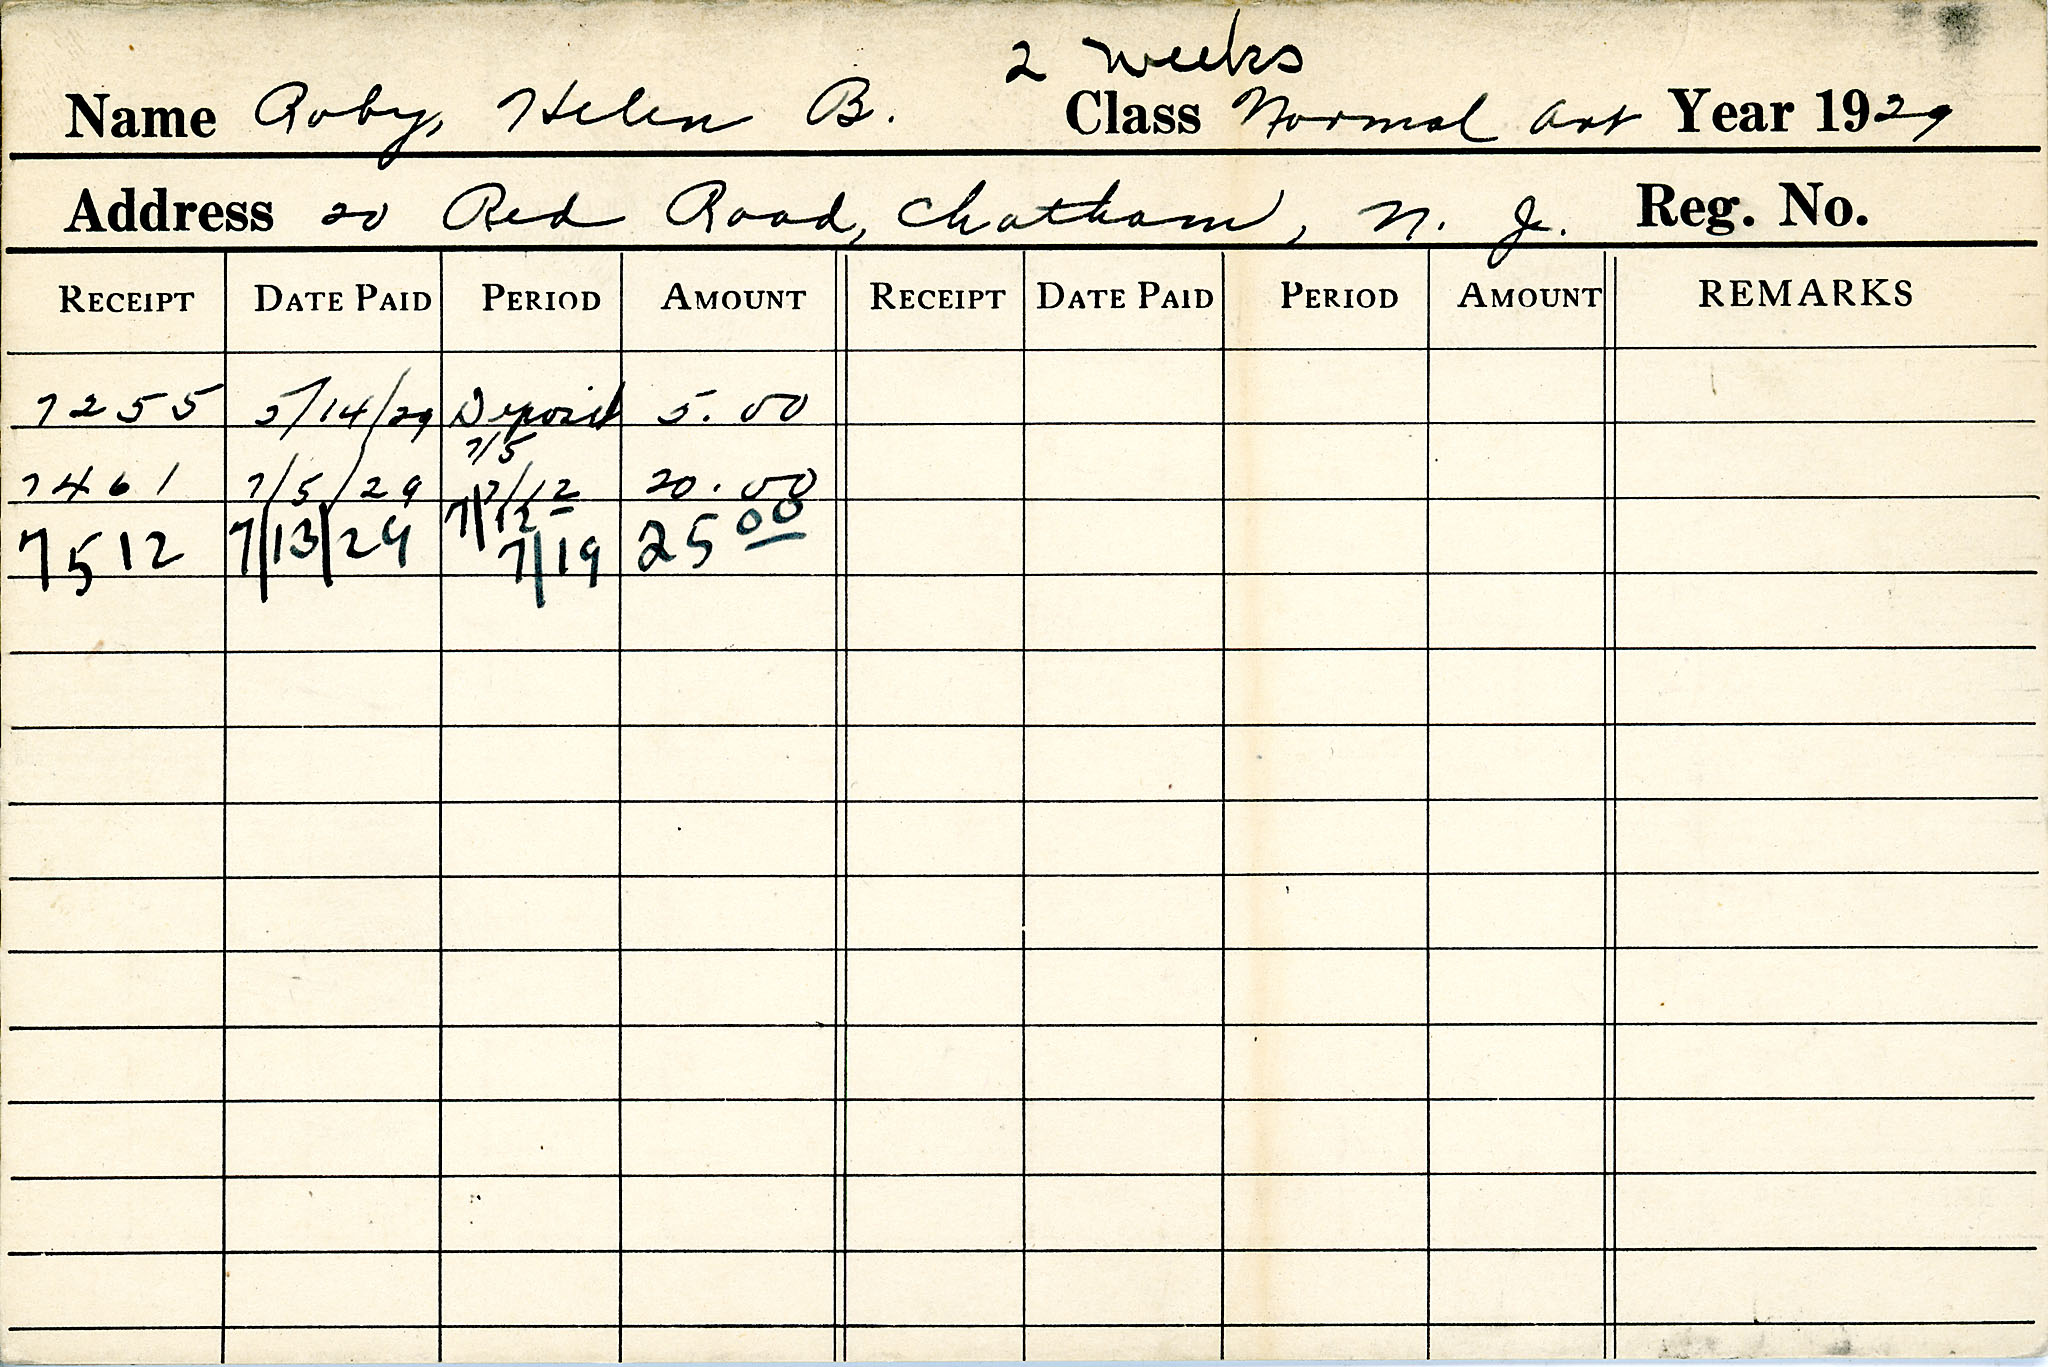 2 weeks
Name Roby, Helen B. Class Normal Art Year 1929
Address 20 Red Road, Chatham, N. J. Reg. No.
RECEIPT DATE PAID PERIOD AMOUNT RECEIPT DATE PAID PERIOD AMOUNT REMARKS
7255 5/14/29 Deposit 5.00
7/5
7461 7/5/29 7/12 20.00
7/12
7512 7/13/29 7/19 25 00